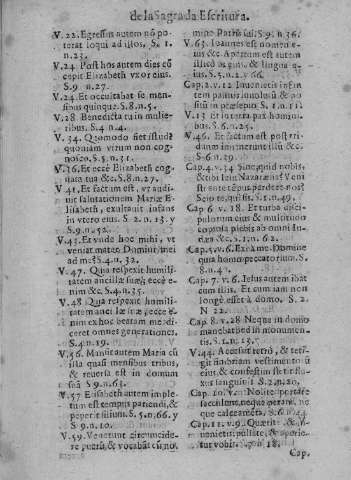 de la Sagrada Escritura.
V. 22. Egressus autem nõ po-
terat loqui ad illos, S. 1.
n. 23.
V. 24. Post hos autem dies cõ
cepit Elizabeth vxor eius.
S. 9. n. 27.
V. 24. Et occultabat se men-
sibus quinque. S. 8. n. 5.
V. 28. Benedicta tu in mulie-
ribus. S. 4. n. 4.
V. 34. Quomodo fiet istud?
quoniam virum non cog-
nosco. S. 5. n. 31.
V. 36. Et eccè Elizabeth cog-
nata tua &c. S. 8. n. 27.
V. 41. Et factum est, vt audi-
uit salutationem Mariæ E-
lisabeth, exultauit infans
in vtero eius. S. 2. n. 13. y
S. 9. n. 32.
V. 43. Et vnde hoc mihi, vt
veniat mater Domini mei
ad me? S. 4. n. 32.
V. 47. Quia respexit humili-
tatem ancillæ suæ, eccè e-
nim &c. S. 4. n. 35.
V. 48. Quia respexit humili-
tatem ancillæ suæ, eccè e-
nim ex hoc beatam me di-
cent omnes generationes.
S. 4. n. 19.
V. 56. Mansit autem Maria cũ
illa quasi mensibus tribus,
& reuersa est in domum
suã S. 9. n. 63.
V. 57. Elisabeth autem imple-
tum est tempus pariendi, &
peperit filium. S. 5. n. 66. y
S. 9. n. 10.
V. 59. Venerunt circuncide-
re puerũ, & vocabãt eũ no-
mine Patris sui. S. 9. n. 36.
V. 63. Ioannes est nomen e-
ius &c. Apertum est autem
illicò os eius, & lingua e-
ius, S. 5. n. 2. y 66.
Cap. 2. v. 12. Inuenietis infan-
tem pannis inuolutũ & po-
sitũ in præsepio. S. 1. n. 11.
V. 13. Et in terra pax homini-
bus. S. 6. n. 25.
V. 46. Et factum est post tri-
duum inuenerunt illũ &c.
S. 6. n. 29.
Cap. 4. v. 34. Sine, quid nobis,
& tibi Iesu Nazaræne? Veni
sti ante tẽpus perdere nos?
Scio te, qui sis. S. 1. n. 49.
Cap. 6. v. 18. Et turba disci-
pulorum eius & multitudo
copiosa plebis ab omni Iu-
dæa &c. S. 1. n. 62.
Cap. 5. v. 6. Exi à me Domine
quia homo peccator sum. S.
8. n. 4.
Cap. 7. v. 6. Iesus autem ibat
cum illis. Et cum iam non
longè esset à domo. S. 2.
N 22.
Cap. 8. v. 28. Neque in domo
manebat sed in monumen-
tis. S. 1. n. 15.
V. 44. Accessit retrò, & teti-
git fimbriam vestimenti
eius, & confestim stetit flu-
xus sanguinis. S. 2. n. 20.
Cap. 10. v. Nolite portare
sacculum, neque peram, ne-
que calceamẽta. S. 6. n. 44
Cap. 11. v. 9. Quærite, & in-
uenietis: pulsate, & aperie-
tur vobis. n. 18.
Cap.